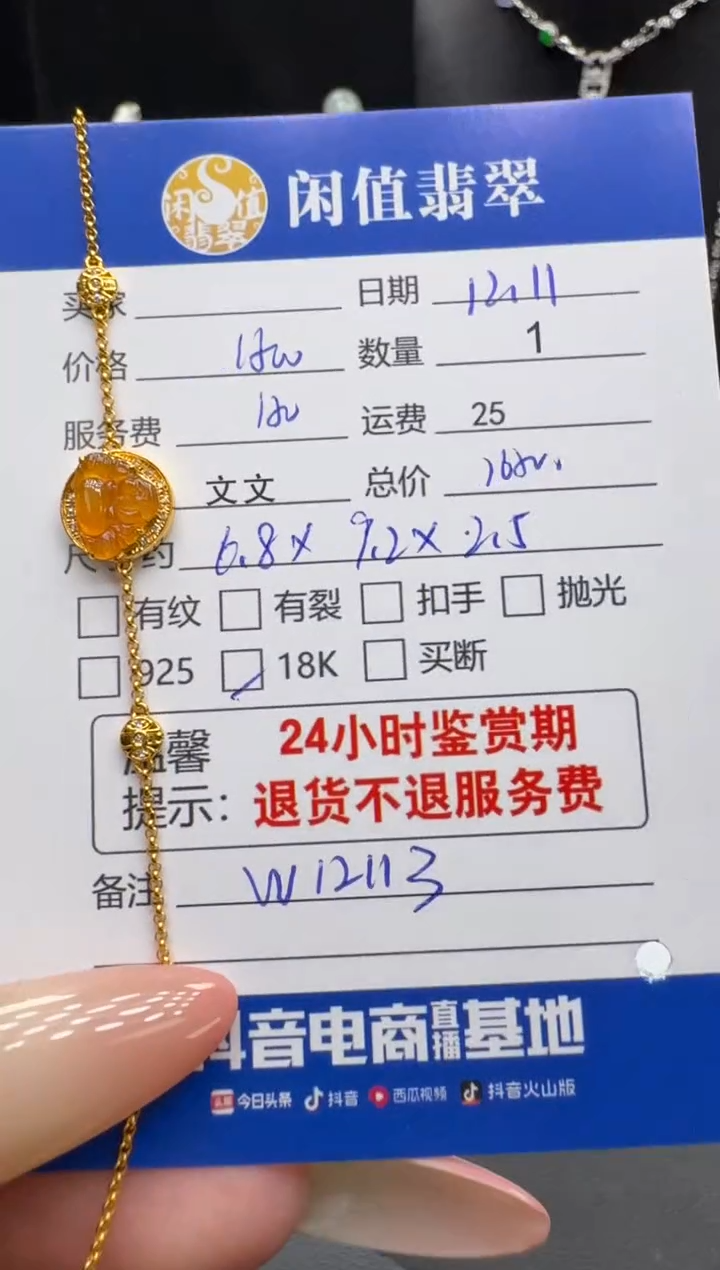 闲值翡翠
闲值翡翠
日期 12.11
价格 数量 1
服务费 运费 25
文文 总价
6.8 x 9.2 x 2.5
有纹 有裂 扣手 抛光
925 18K 买断
温馨 24小时鉴赏期
提示: 退货不退服务费
备注 W12113
抖音电商直播基地
头条 今日头条 抖音 西瓜视频 抖音火山版